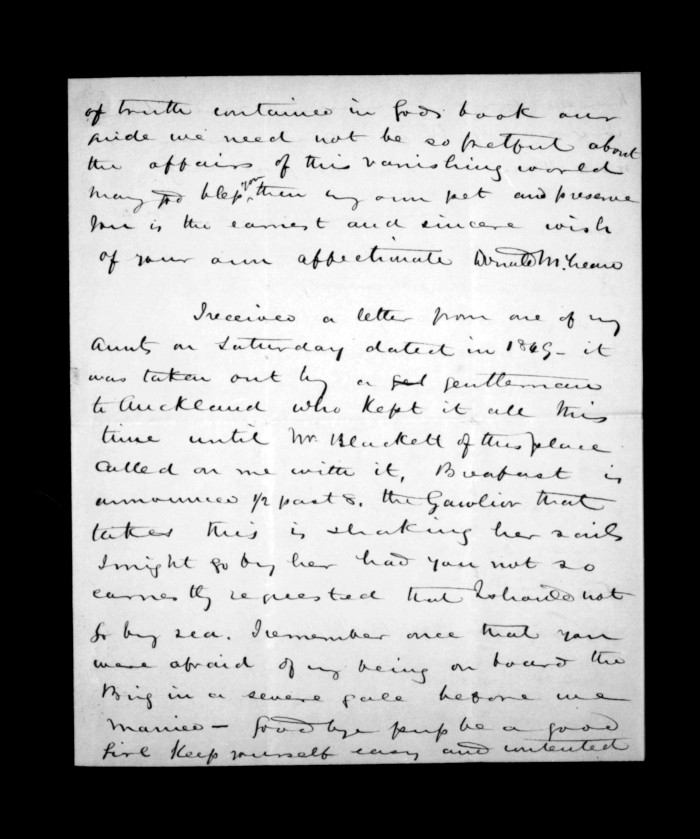 of truth contained in Gods book our
guide we need not be so fretful about
the affairs of this vanishing world
may God bless you then my own pet and preserve
you is the earnest and sincere wish
of your own affectionate Donald McLean
I received a letter from one of my
Aunts on Saturday dated in 1849 - it
was taken out by a gentleman
to Auckland who kept it all this
time until Mr. Blackett of this place
called on me with it, Breafast is
announced 1/2 past 8. the Gawlior that
takes this is shaking her sails
I might go by her had you not so
earnestly requested that I should not
go by sea. I remember once that you
were afraid of my being on board the
Brig in a severe gale before we
married - Goodbye pup be a good
Girl keep yourself easy and contented